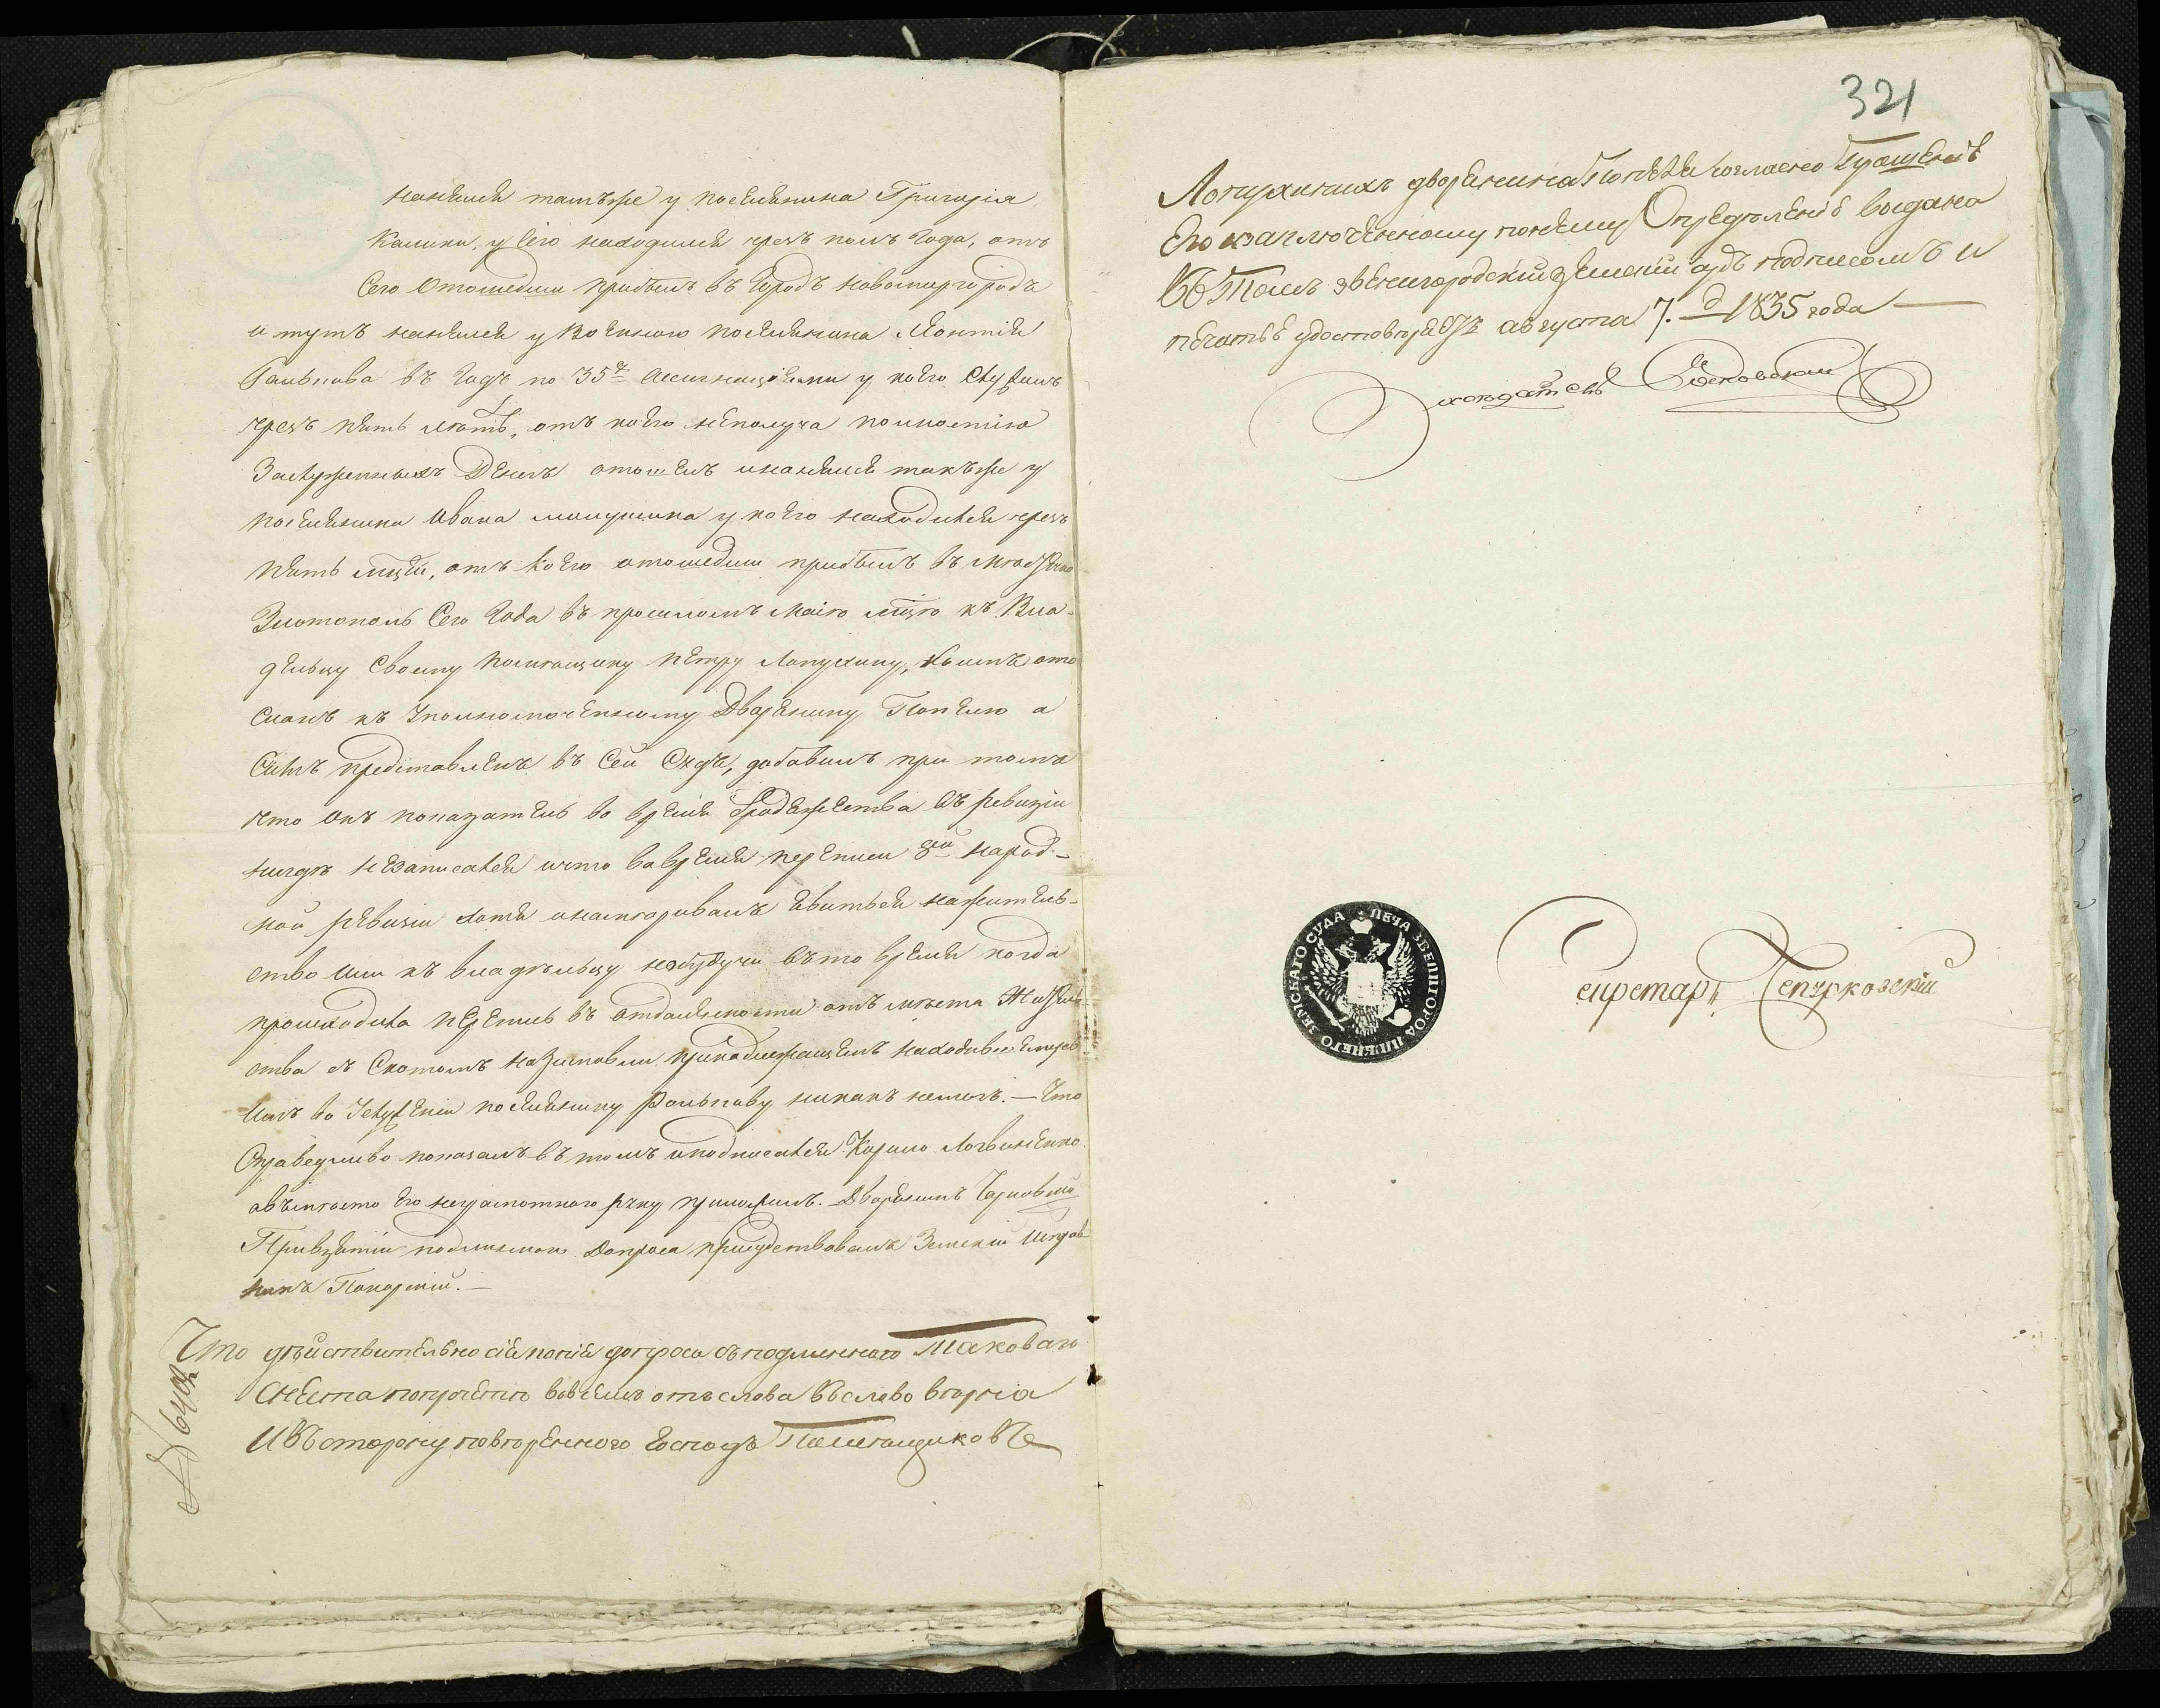 нанялся тамъже у поселянина Григорія
Калины, у сего находился чрезъ полъ года, отъ
Сего Отошедши прибылъ въ Городъ Новомиргородъ
и тутъ нанялся у Военнаго поселянина Леонтія
въ Годъ по 35 р. Ассигнаціями у коего Служилъ
чрезъ пять лѣтъ, отъ коего неполуча полностію
Заслуженныхъ Денегъ отошелъ инанялся такъже у
поселянина Ивана у коего Находился чрезъ
пять мцей, отъ коего отошедши прибылъ въ мѣстечко
Златополь Сего Года въ прошломъ Маію мцю къ Вла-
дельцу Своему Помѣщику Петру Лопухину, коимъ ото
сланъ къ Уполномоченному Дворянину Попелю а
Симъ представленъ въ Сей Судъ, добавилъ при томъ
что Онъ показатель во время бродяжества въ ревизіи
нигдѣ незаписался ичто вовремя переписи 8ой народ-
ной ревизіи хотя инамѣривалъ явиться нажитель-
ство Или къ владѣльцу небудучи въто время когда
происходила перепись въ Отдаленности отъ мѣста Жи
ства съ Скотомъ НаЗимовли принадлежащемъ находив
Имъ во поселянину никакъ немогъ. — Что
Справедливо показалъ въ томъ иподписался Кирило Логвиненко
авъмѣсто его неграмотнаго руку приложилъ. Дворянинъ
Привзятіи подлинного Допроса присудствовалъ Земскій Исправ
никъ
Что дѣйствительно сія копія допроса съподлиннаго Таковаго
снята вовсемъ отъслова въслово вѣрнія
Ивъсторону повѣренного Господъ Помѣщиковъ
321
Лопухиныхъ дворянина Попеля согласно Прошенія
Его изаключенному понему Опредѣленію выдана
Въ Томъ звенигородскій земскій судъ подписомъ и
печатью удостовѣряетъ августа 7. д 1835 года —
Секретарь
ПЕЧА ЗВЕНИГОРОД ЗЕМСКАГО СУДА